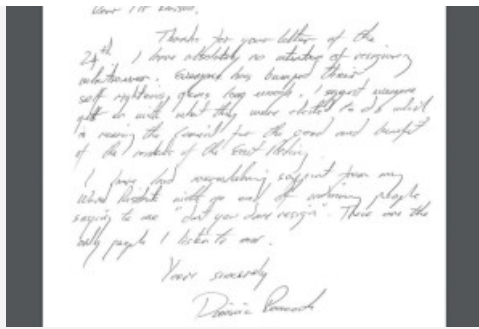 Thanks for your letter of the
24th. I have absolutely no intention of resigning
whatsoever. Everyone has banged their
self righteous drums long enough. I suggest everyone
get on with what they were elected to do which
is running the Council for the good and benefit
of the residents of the East
I have had overwhelming support from my
Ward with no end of ordinary people
saying to me "don't you dare resign". These are the
only people I listen to now.
Yours sincerely